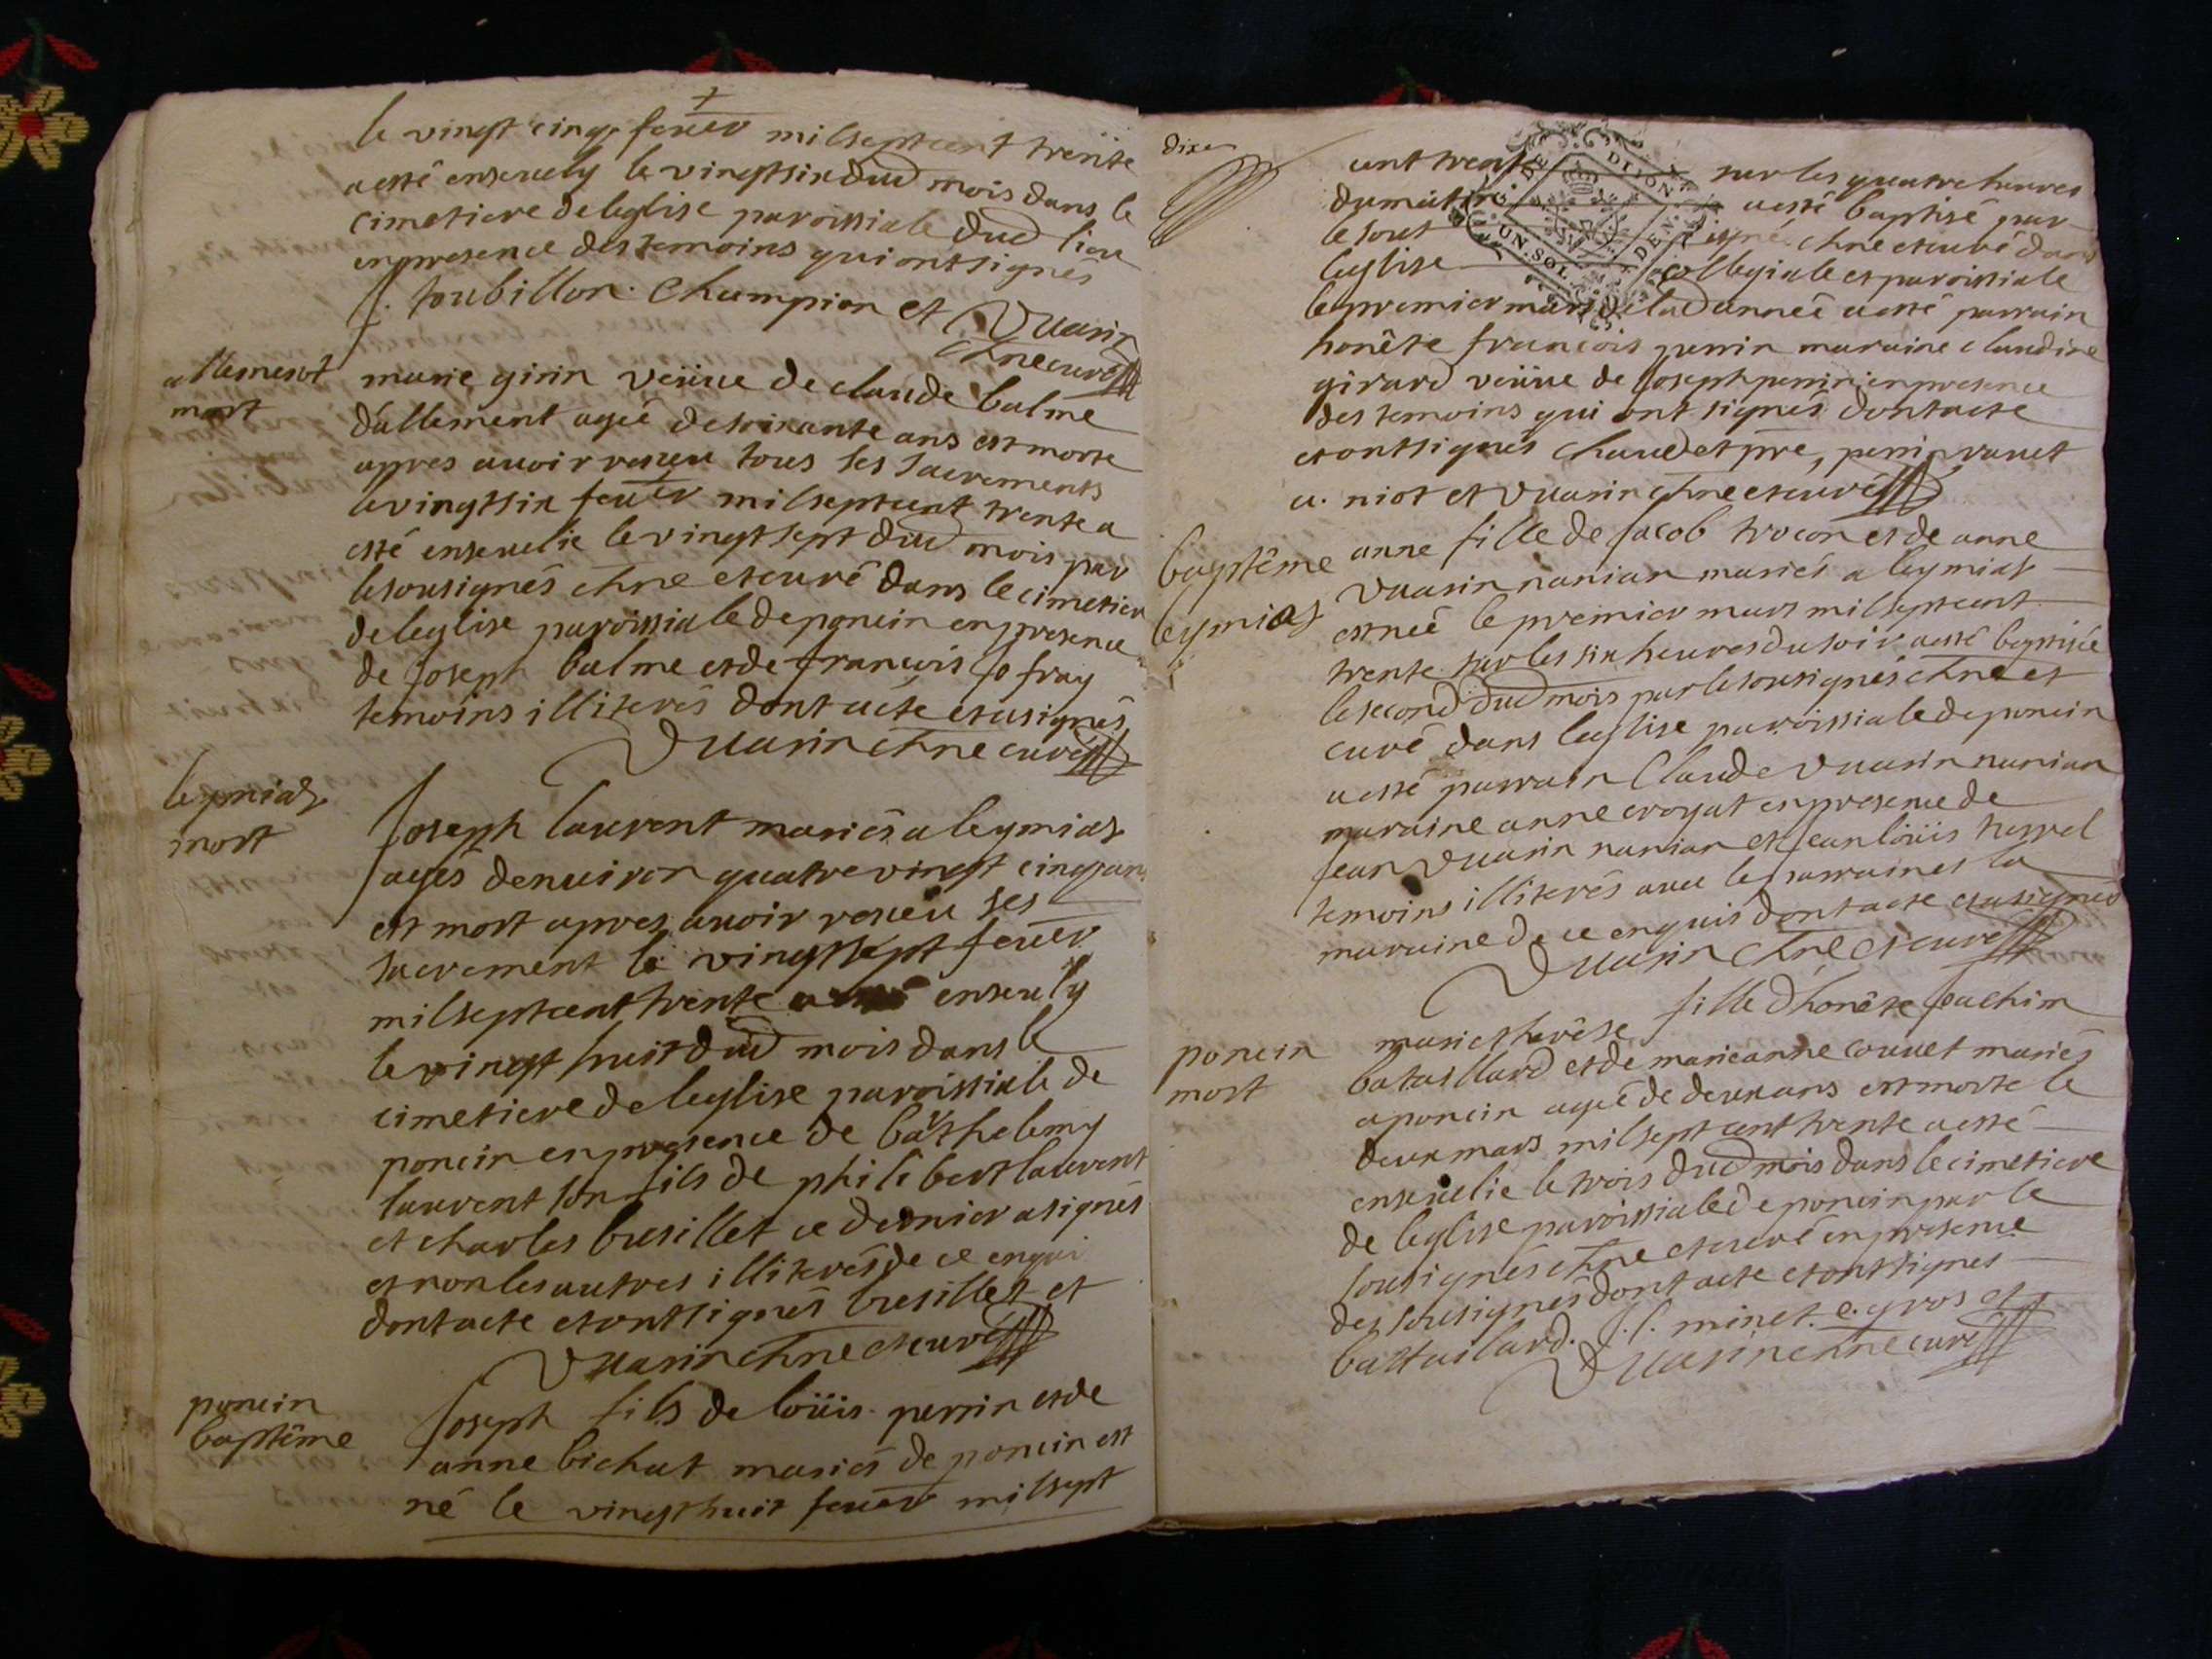 le vingt cinq feuer mil septcent trente
a esté enseuely le vingtsix dud mois dans le
cimetiere de leglise paroissiale dud lieu
enpresence des temoins qui ont signés
J. toubillon. Champion et Vuarin
chne curé
allement
mort
marie girin veüue de claude balme
dallement ageé de soixante ans est morte
apres auoir receu tous ses sacrements
le vingtsix feuer mil septcent trente a
esté enseuelie le vingtsept dud mois par
le sousignés chne et curé dans le cimetiere
de leglise paroissiale de poncin en presence
de Joseph balme et de francois Jofray
temoins illiterés dont acte et a signés
Vuarin chne curé
leymiat
mort
Joseph laurent mariés a leymiat
agés denuiron quatre vingt cinq ans
est mort apres auoir receu ses
sacrement le vingtsept feuer
mil septcent trente a esté enseuely
le vingt huit dud mois dans le
cimetiere de leglise paroissiale de
poncin en presence de barthelemy
laurent son fils de philibert laurent
et charles busillet ce dernier a signés
et non les autres illiterés de ce enqui
dont acte et ont signés busillet et
Vuarin chne et curé
poncin
baptême
Joseph fils de loüis perrin et de
anne bichat mariés de poncin est
né le vingthuit feuer mil sept
dixe
cent trente sur les quatre heures
du matin a esté baptisé par
le sous signé chne et curé dans
leglise collegiale et paroissiale
le premier mars de lad anneé a esté parrain
honête francois perrin maraine claudine
girard veüue de Joseph perrin en presence
des temoins qui ont signés dont acte
et ont signés chaudet pre, perrin ravet
a. niot et Vuarin chne et curé
GEN. DE DIJON
UN. SOL.
baptême
leymiat
anne fille de Jacob trocon et de anne
Vuarin nanian mariés a leymiat
est neé le premier mars mil septcent
trente sur les six heures du soir a esté baptisée
le second dud mois par le sousignés chne et
curé dans leglise paroissiale de poncin
a esté parrain Claude Vuarin nanian
maraine anne croyat en presence de
Jean Vuarin nanian et Jean loüis tuppel
temoins illiterés auec les parraines la
maraine de ce enquis dont acte et a signés
Vuarin chne et curé
poncin
mort
marie therêse fille dhonête Joachim
bataillard et de marie anne couuet mariés
a poncin agé de deux ans est morte le
deux mars mil sept cent trente a esté
enseuelie le trois dud mois dans le cimetiere
de leglise paroissiale de poncin par le
sousignés chne et curé en presence
des sousignés dont acte et ont signés
battailard. J. l. minet. e. gros et
Vuarin chne curé